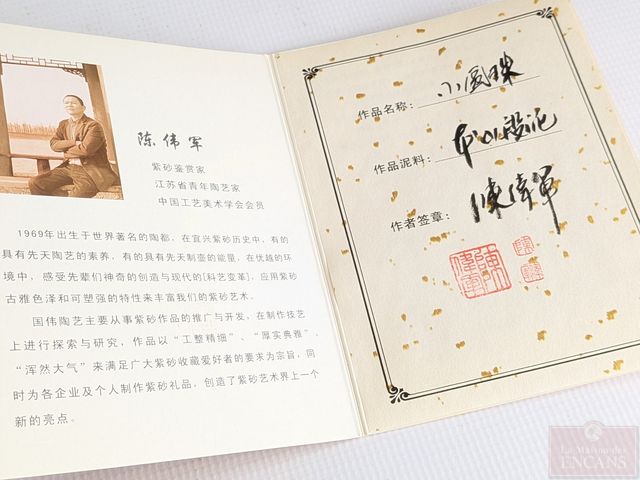 陈伟军
紫砂鉴赏家
江苏省青年陶艺家
中国工艺美术学会会员
1969年出生于世界著名的陶都，在宜兴紫砂历史中，有的
具有先天陶艺的素养，有的具有先天制壶的能量，在优越的环
境中，感受先辈们神奇的创造与现代的[科艺变革]，应用紫砂
古雅色泽和可塑强的特性来丰富我们的紫砂艺术。
国伟陶艺主要从事紫砂作品的推广与开发，在制作技艺
上进行探索与研究，作品以“工整精细”、“厚实典雅”、
“浑然大气”来满足广大紫砂收藏爱好者的要求为宗旨，同
时为各企业及个人制作紫砂礼品，创造了紫砂艺术界上一个
新的亮点。
作品名称：小圆珠
作品泥料：本山段泥
作者签章：陳偉軍
陳偉軍
La Maison des
ENCANS